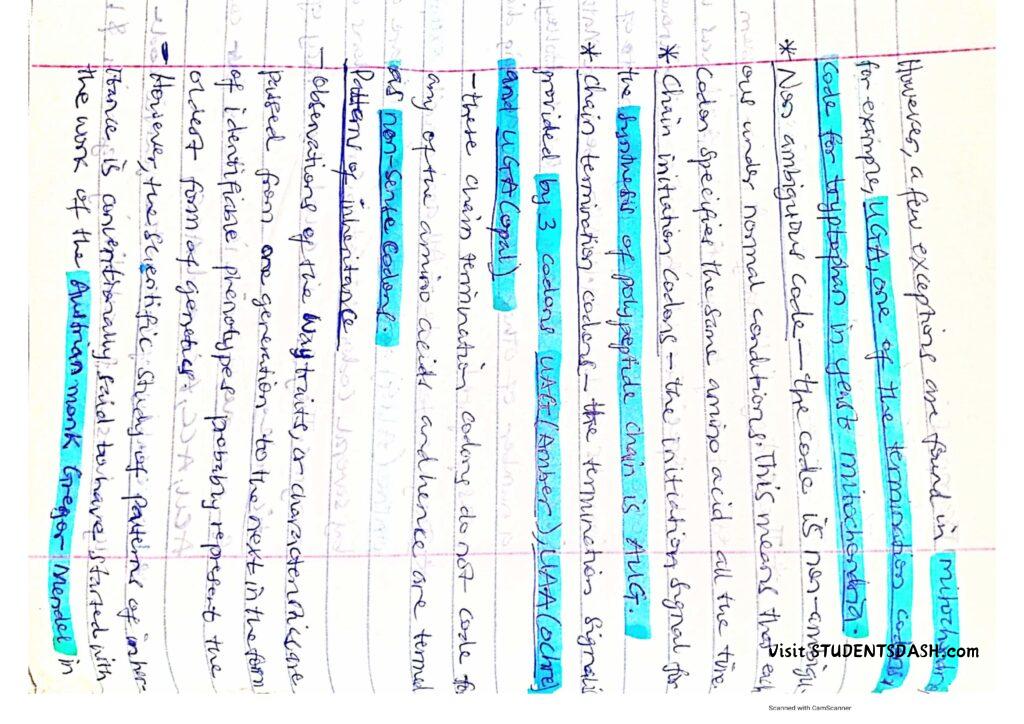 However, a few exceptions are found in mitochondria,
for example, UGA, one of the termination codons,
code for tryptophan in yeast mitochondria.
* Non ambiguous code - the code is non-ambigu
ous under normal conditions. This means that each
codon specifies the same amino acid all the time.
* Chain initiation codons - the initiation signal for
the synthesis of polypeptide chain is AUG.
* Chain termination codons - the termination signal is
provided by 3 codons UAG (Amber), UAA (ochre)
and UGA (opal)
- these chain termination codons do not code for
any of the amino acids and hence are termed
as non-sense codons.
Pattern of inheritance
- Observations of the way traits, or characteristics are
passed from one generation to the next in the form
of identifiable phenotypes probably represent the
oldest form of genetics.
- However, the scientific study of patterns of inher-
itance is conventionally said to have started with
the work of the Austrian monk Gregor Mendel in
Visit STUDENTSDASH.com
Scanned with CamScanner